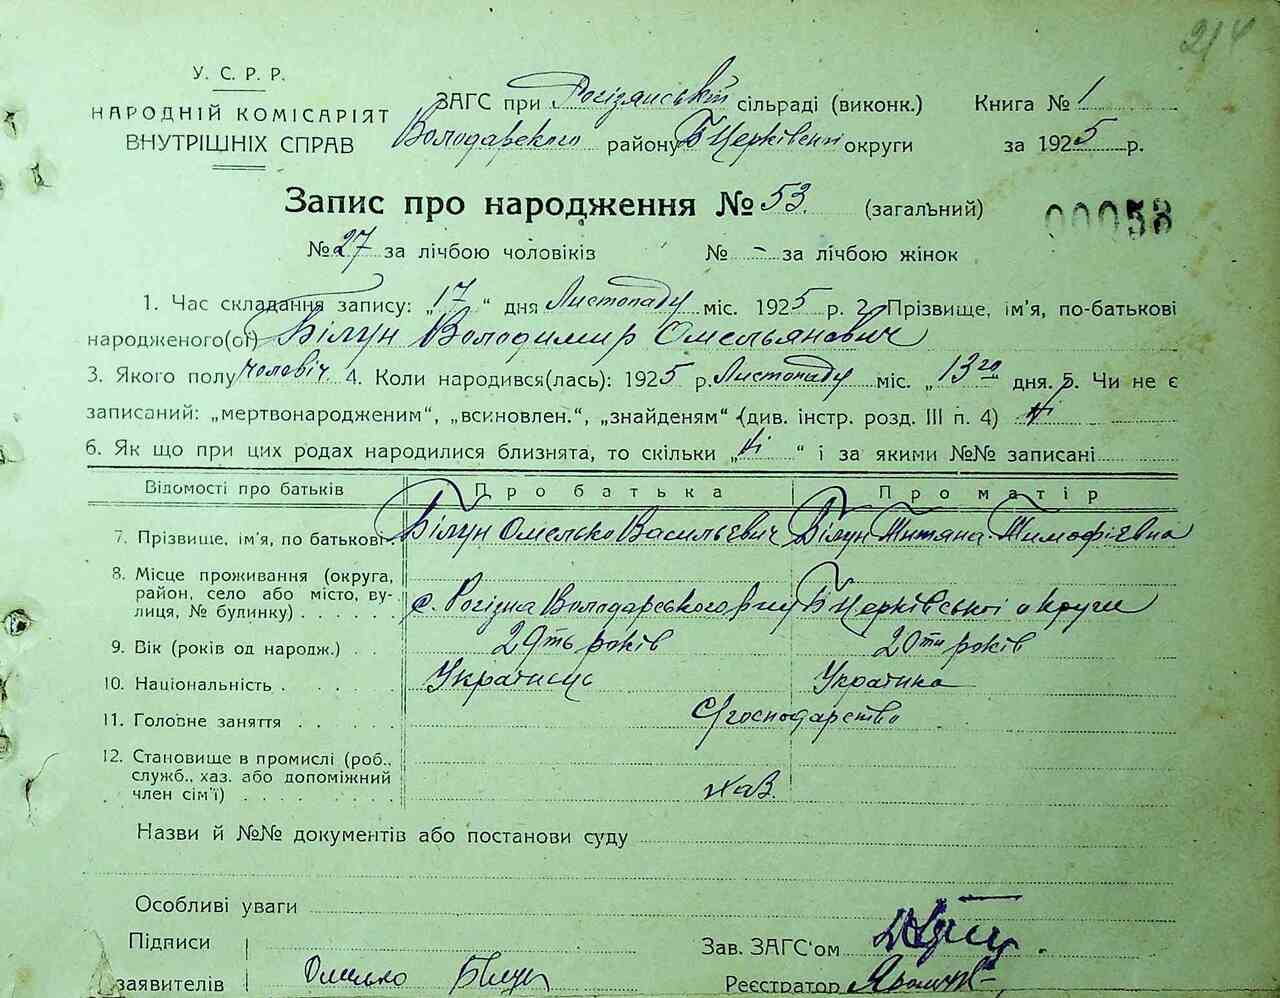 214
У. С. Р. Р.
НАРОДНІЙ КОМІСАРІЯТ
ВНУТРІШНІХ СПРАВ
ЗАГС при Рогізянській сільраді (виконк.) Книга № 1
Володарского району Б Церківськ округи за 1925 р.
Запис про народження № 53. (загальний)
00058
№ 27 за лічбою чоловіків № - за лічбою жінок
1. Час складання запису: "17" дня Листопаду міс. 1925 р. 2. Прізвище, ім'я, по-батькові
народженого(ої) Білун Володимир Омельянович
3. Якого полу чоловіч. 4. Коли народився(лась): 1925 р. Листопаду міс. „13го" дня. 5. Чи не є
записаний: „мертвонародженим“, „всиновлен.“, „знайденям“ (див. інстр. розд. III п. 4) ні
6. Як що при цих родах народилися близнята, то скільки „ні“ і за якими №№ записані
Відомості про батьків Про батька Про матір
7. Прізвище, ім'я, по батькові. Білун Омелько Васильєвич Білун Титяна Тимофієвна
8. Місце проживання (округа,
район, село або місто, ву-
лиця, № будинку) с. Рогізна Володарського р-ну Б Церківської округи
9. Вік (років од народж.) 29ть років 20ти років
10. Національність Українець Українка
11. Головне заняття С/господарство
12. Становище в промислі (роб.,
служб., хаз. або допоміжний
член сім'ї) хаз.
Назви й №№ документів або постанови суду
Особливі уваги
Підписи
заявителів Омелько Білун
Зав. ЗАГС'ом
Реєстратор